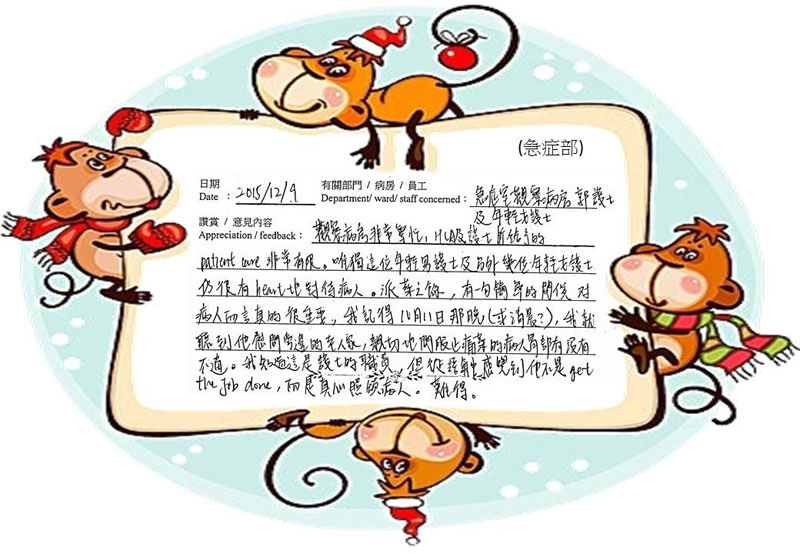 (急症部)
日期 有關部門 / 病房 / 員工
Date : 2015/12/9 Department/ ward/ staff concerned : 急症室觀察病房 郭護士
及年輕男護士
讚賞 / 意見內容
Appreciation / feedback : 觀察病房非常繁忙, HCA及護士所能予的
patient care 非常有限。唯獨這位年輕男護士及另外幾位年輕男護士
仍很有 heart 地對待病人。派藥之餘, 有句簡單的關係對
病人而言真的很重要, 我記得11月11日那晚(或清晨?), 我就
聽到他慰問旁邊的老人家, 親切地問服止痛藥的病人胃部有沒有
不適。我知道這是護士的職責, 但從接觸感覺到他不是 get
the job done, 而是真心照顧病人。難得。